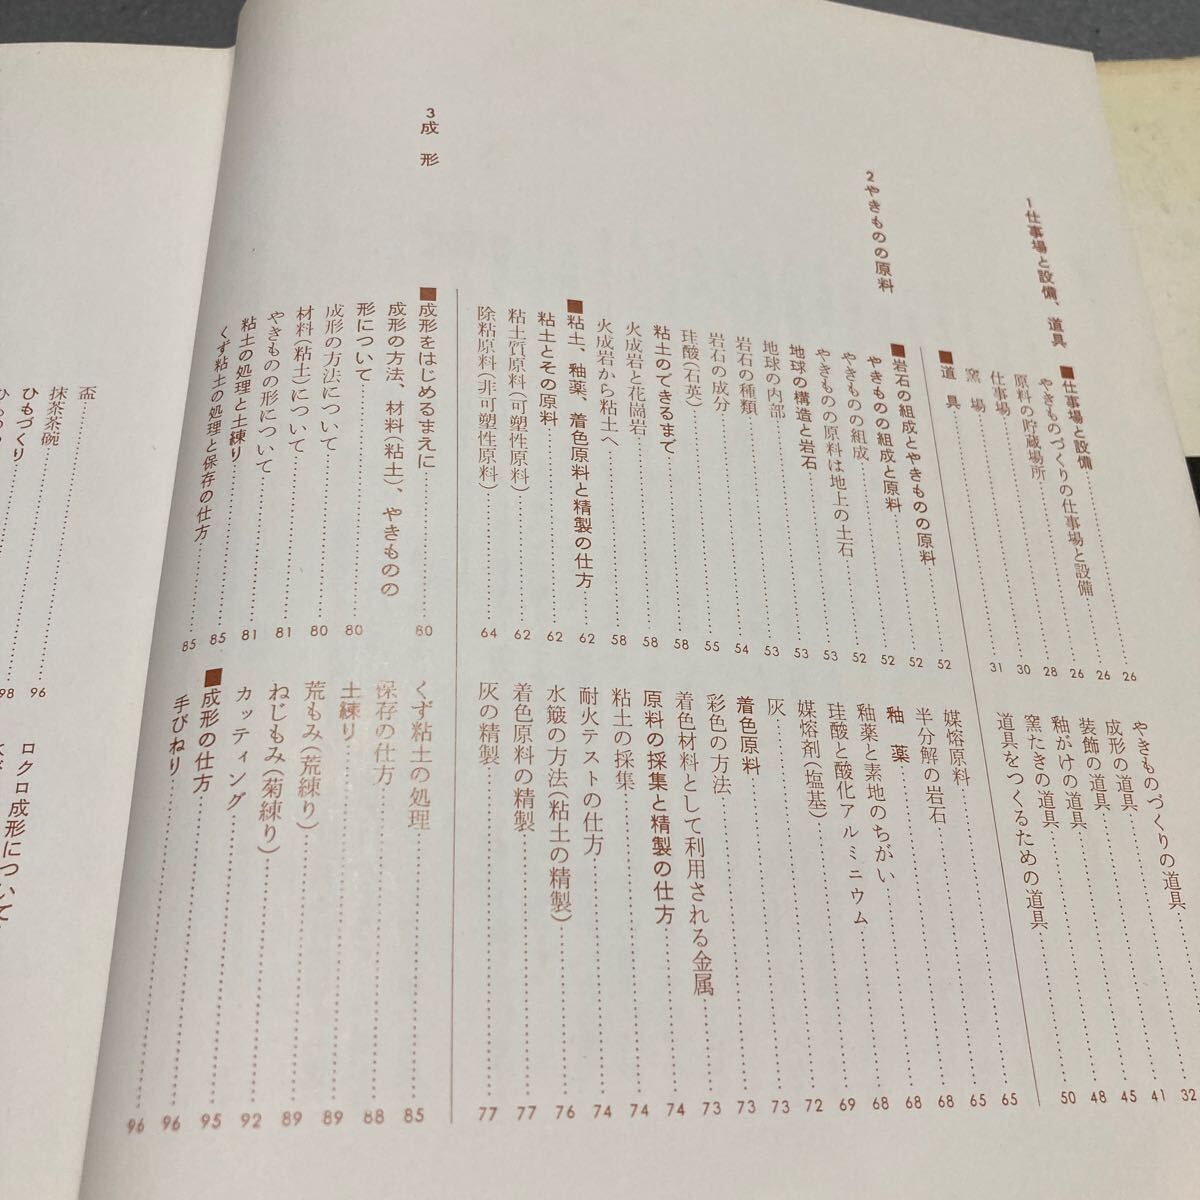 1 仕事場と設備、道具
■仕事場と設備 26
やきものづくりの仕事場と設備 26
原料の貯蔵場所 26
仕事場 28
窯場 30
■道具 31
やきものづくりの道具
成形の道具 32
装飾の道具 41
釉がけの道具 45
窯たきの道具 48
道具をつくるための道具 50
2 やきものの原料
■岩石の組成とやきものの原料 52
やきものの組成と原料 52
やきものの組成 52
やきものの原料は地上の土石 52
地球の構造と岩石 53
地球の内部 53
岩石の種類 53
岩石の成分 54
珪酸(石英) 55
粘土のできるまで 58
火成岩と花崗岩 58
火成岩から粘土へ 58
■粘土、釉薬、着色原料と精製の仕方 62
粘土とその原料 62
粘土質原料(可塑性原料) 62
除粘原料(非可塑性原料) 64
媒熔原料 65
半分解の岩石 65
釉薬 68
釉薬と素地のちがい 68
珪酸と酸化アルミニウム 68
媒熔剤(塩基) 69
灰 72
着色原料 73
彩色の方法 73
着色材料として利用される金属 73
原料の採集と精製の仕方 74
粘土の採集 74
耐火テストの仕方 74
水簸の方法(粘土の精製) 76
着色原料の精製 77
灰の精製 77
3 成形
■成形をはじめるまえに 80
成形の方法、材料(粘土)、やきものの
形について 80
成形の方法について 80
材料(粘土)について 81
やきものの形について 81
粘土の処理と土練り 85
くず粘土の処理と保存の仕方 85
くず粘土の処理 85
保存の仕方 88
土練り 89
荒もみ(荒練り) 89
ねじもみ(菊練り) 92
カッティング 95
■成形の仕方 96
手びねり 96
盃
抹茶茶碗 96
ひもづくり 98
ロクロ成形について